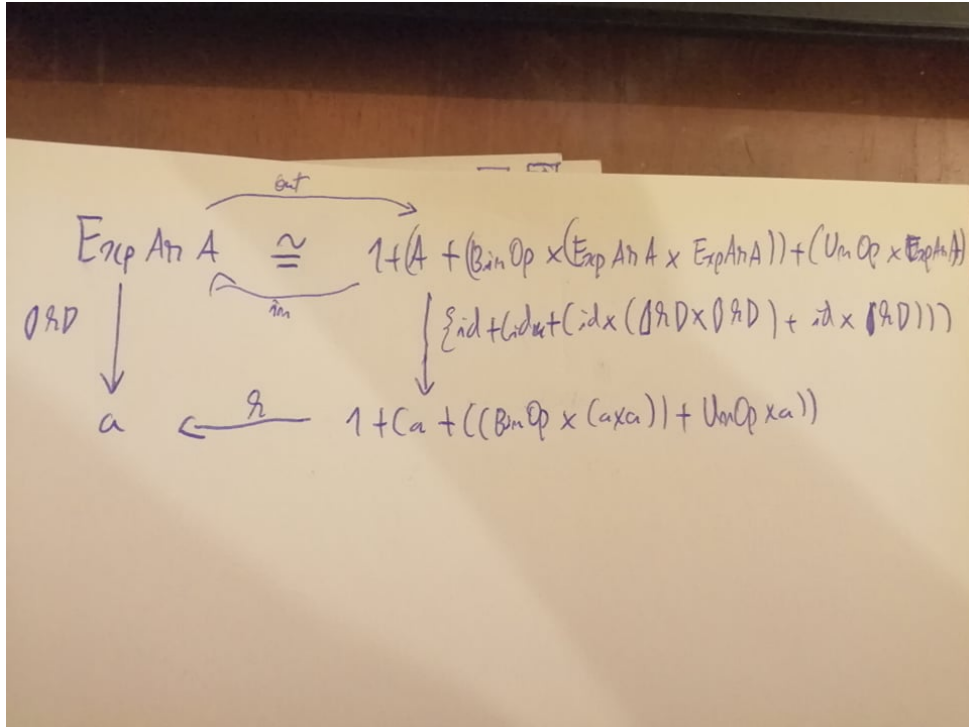 out
ExpAr A ≅ 1+(A + (BinOp × (ExpAr A × ExpAr A)) + (UnOp × ExpAr A)
in
⦇g⦈ {id+(id+(id×(⦇g⦈×⦇g⦈) + id × ⦇g⦈)))
a g 1+(a +((BinOp × (a×a)) + UnOp×a))